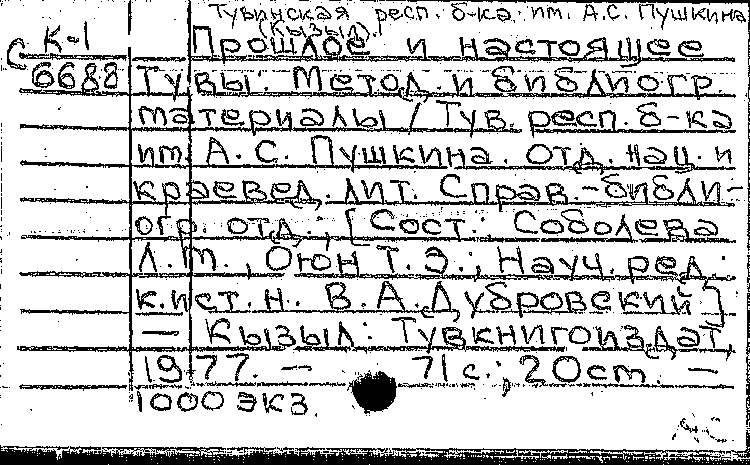 Тувинская респ. б-ка им. А.С. Пушкина
(Кызыл).
К-1 Прошлое и настоящее
С 6688 Тувы: Метод. и библиогр.
материалы / Тув. респ. б-ка
им. А. С. Пушкина. Отд. нац. и
краевед. лит. Справ.-библи-
огр. отд.; [Сост.: Соболева
Л. М., Оюн Т. Э.; Науч. ред.:
к. ист. н. В. А. Дубровский]
— Кызыл: Тувкнигоиздат,
1977. — 71 с.; 20 см. —
1000 экз.